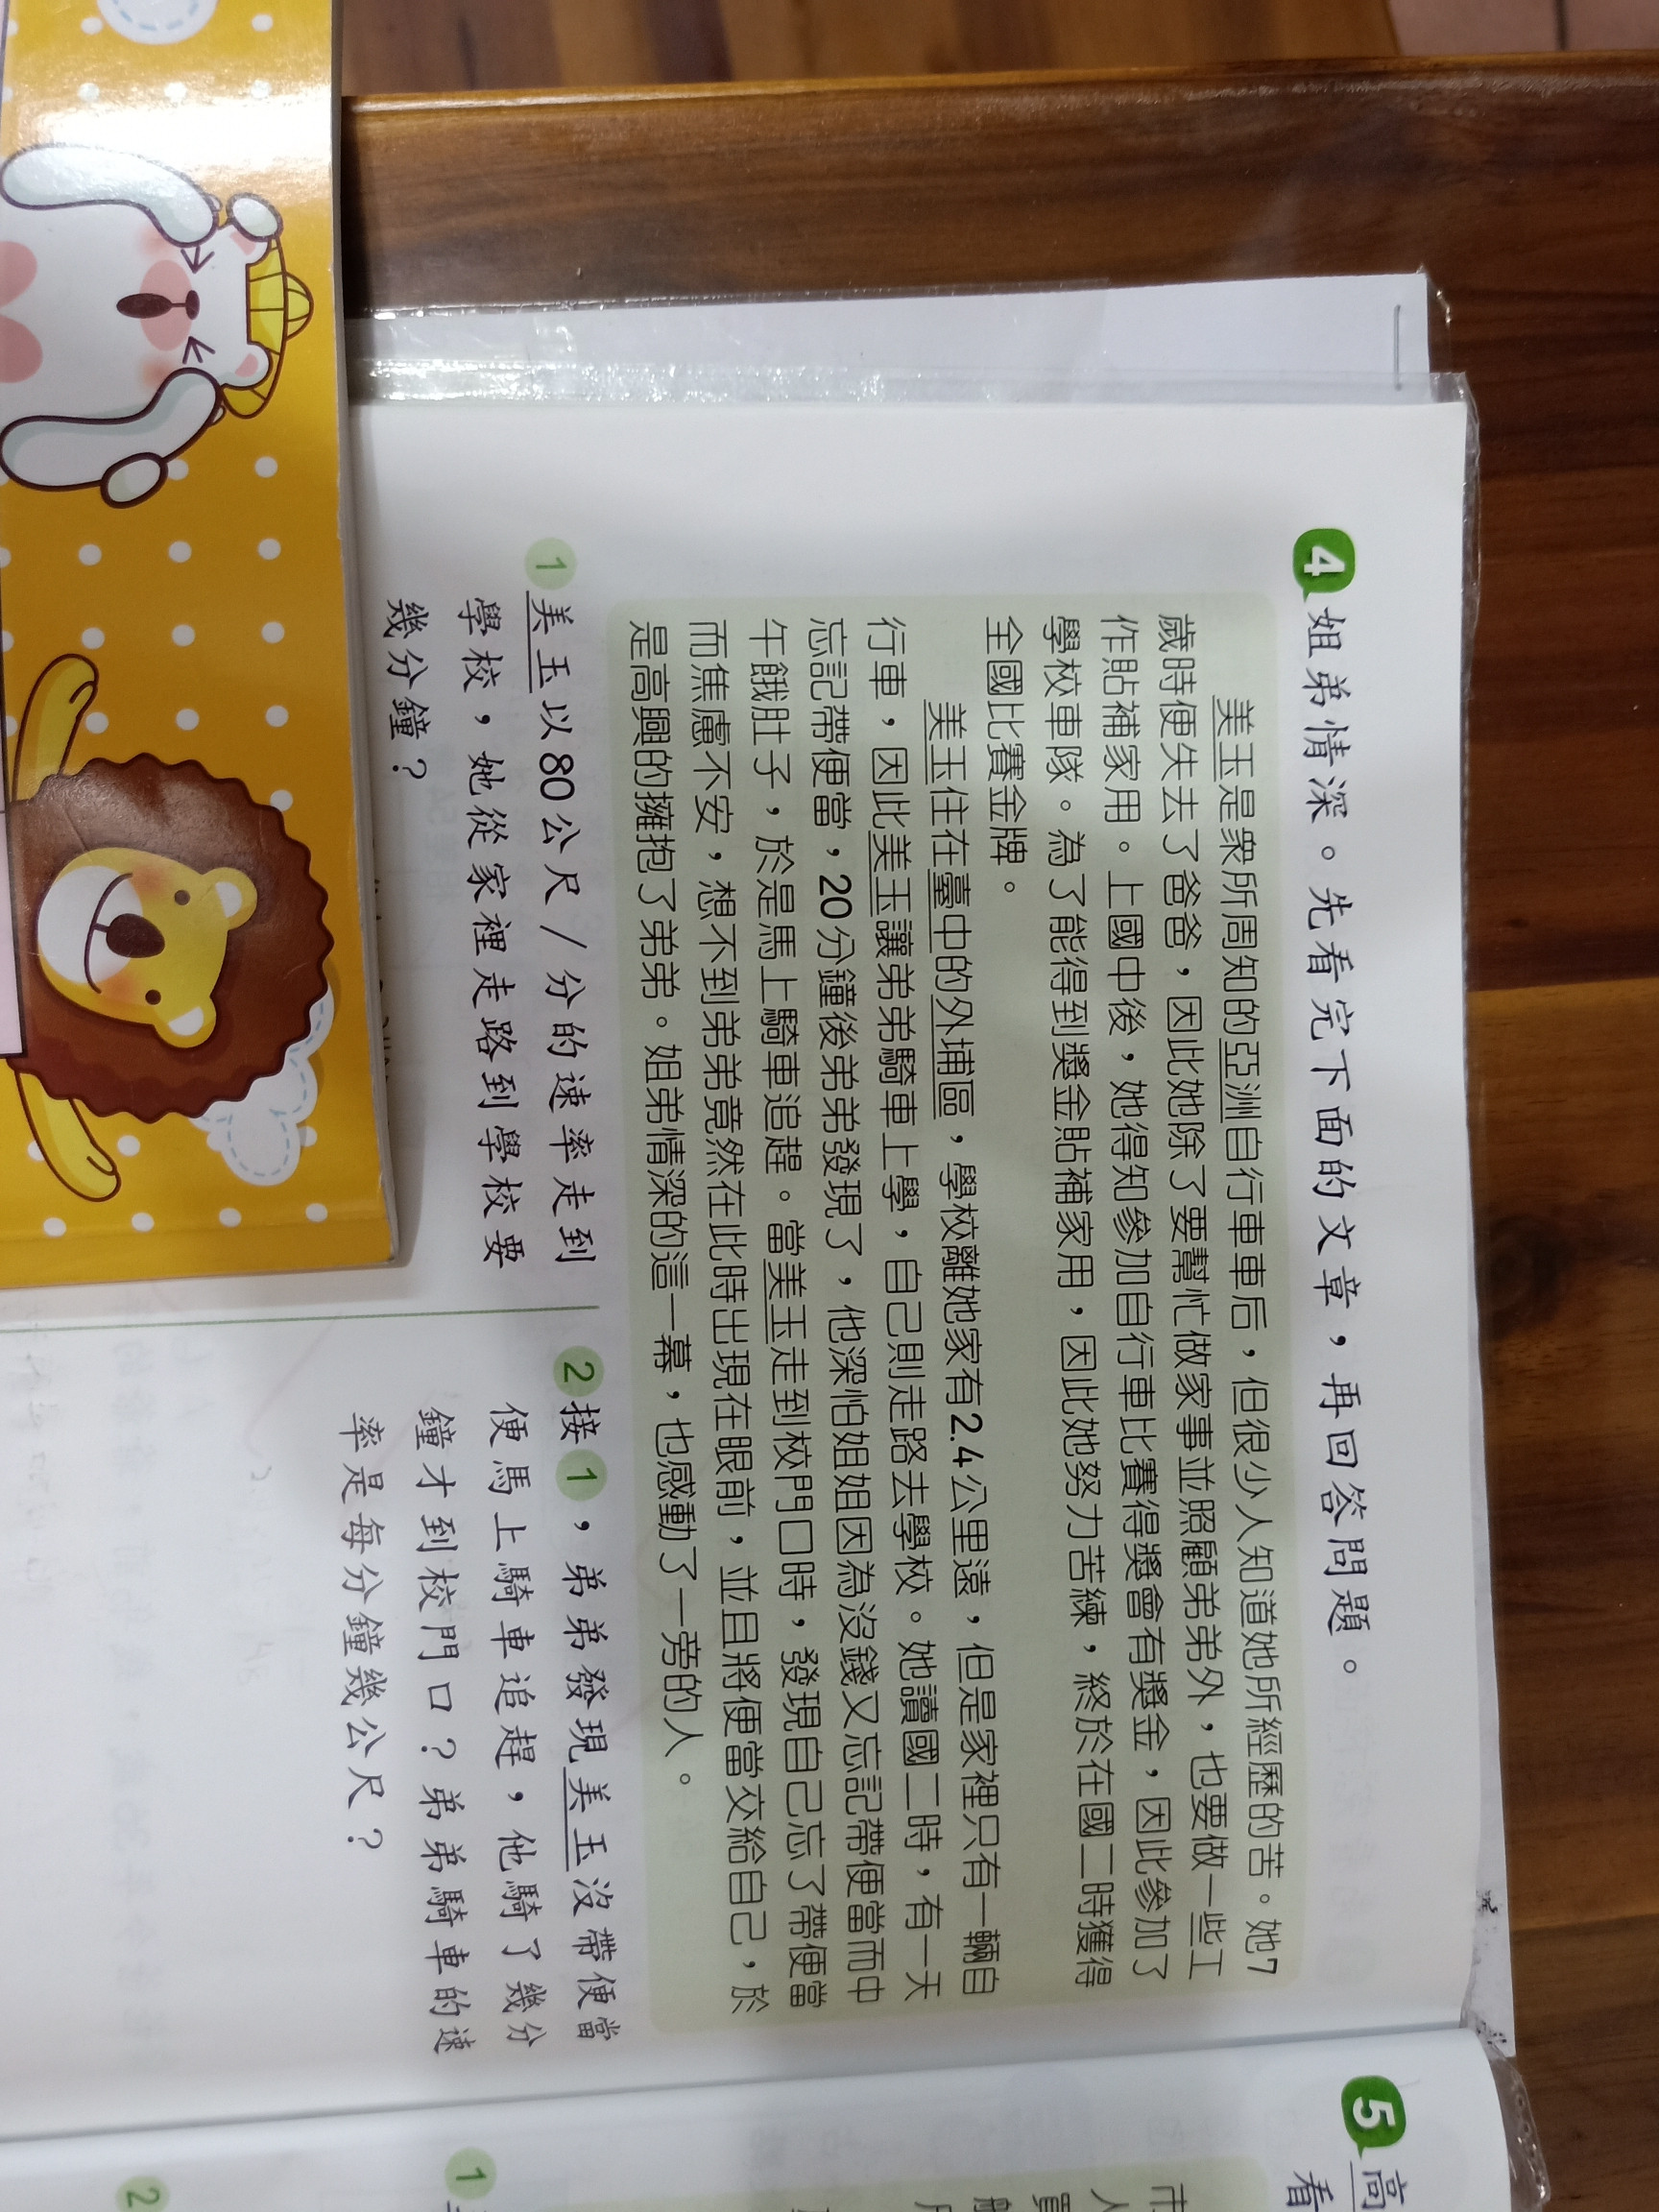 4 姐弟情深。先看完下面的文章，再回答問題。
美玉是眾所周知的亞洲自行車車后，但很少人知道她所經歷的苦。她7
歲時便失去了爸爸，因此她除了要幫忙做家事並照顧弟弟外，也要做一些工
作貼補家用。上國中後，她得知參加自行車比賽得獎會有獎金，因此參加了
學校車隊。為了能得到獎金貼補家用，因此她努力苦練，終於在國二時獲得
全國比賽金牌。
美玉住在臺中的外埔區，學校離她家有2.4公里遠，但是家裡只有一輛自
行車，因此美玉讓弟弟騎車上學，自己則走路去學校。她讀國二時，有一天
忘記帶便當，20分鐘後弟弟發現了，他深怕姐姐因為沒錢又忘記帶便當而中
午餓肚子，於是馬上騎車追趕。當美玉走到校門口時，發現自己忘了帶便當
而焦慮不安，想不到弟弟竟然在此時出現在眼前，並且將便當交給自己，於
是高興的擁抱了弟弟。姐弟情深的這一幕，也感動了一旁的人。
1 美玉以80公尺／分的速率走到
學校，她從家裡走路到學校要
幾分鐘？
2 接1，弟弟發現美玉沒帶便當
便馬上騎車追趕，他騎了幾分
鐘才到校門口？弟弟騎車的速
率是每分鐘幾公尺？
5 高
看
市
人
買
1
2